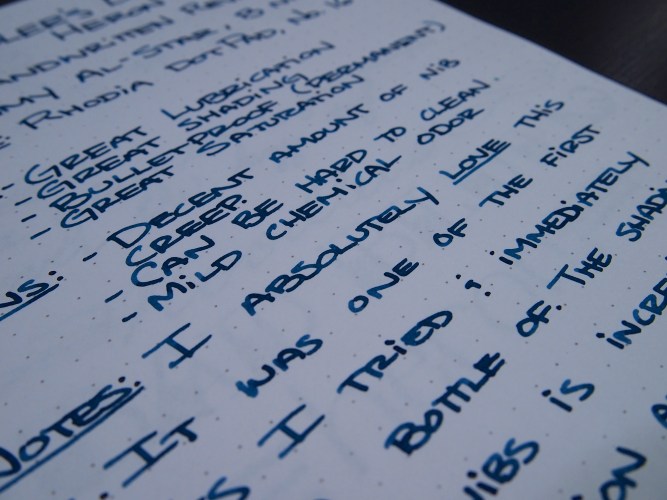 HERON
HANDWRITTEN
AL-STAR, B
RHODIA DOTPAD, NO. 16
- GREAT LUBRICATION
- GREAT SHADING
- BULLET-PROOF (PERMANENT)
- GREAT SATURATION
- DECENT AMOUNT OF NIB
CREEP.
- CAN BE HARD TO CLEAN.
- MILD CHEMICAL ODOR
NOTES: I ABSOLUTELY LOVE THIS
IT WAS ONE OF THE FIRST
I TRIED & IMMEDIATELY
BOTTLE OF. THE
NIBS IS